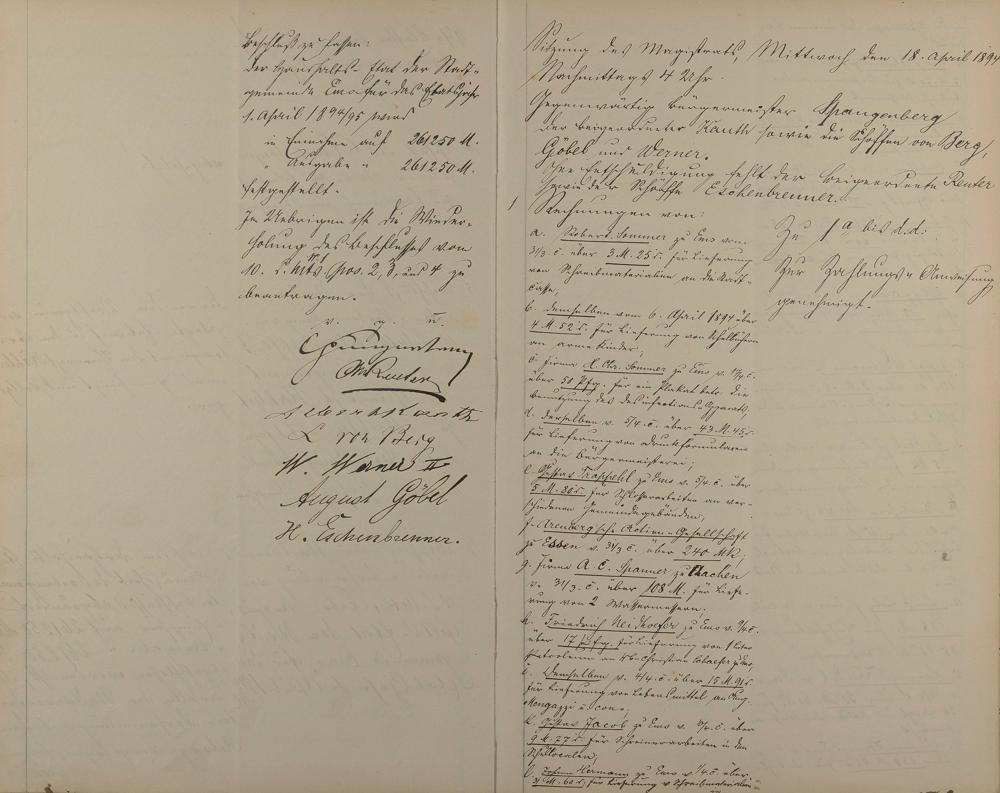 Beschluß zu fassen:
Der Haushalts-Etat der Stadt-
gemeinde Ems für das Etatsjahr
1. April 1894/95 wird
in Einnahme auf 261250 M.
" Ausgabe " 261250 M.
festgestellt.
Im Uebrigen ist die Wieder-
holung des Beschlusses vom
10. d. Mts. Pos. 2, 3, und 4 zu
beantragen.
v. g. u.
Spangenberg
Reuter
Kauth
L von Berg
W. Werner II
August Göbel
H. Eschenbrenner.
Sitzung des Magistrats, Mittwoch den 18. April 1894
Nachmittags 4 Uhr.
Gegenwärtig Bürgermeister Spangenberg
der Beigeordnete Kauth sowie die Schöffen von Berg,
Göbel und Werner.
Ohne Entschuldigung fehlt der Beigeordnete Reuter
sowie der Schöffe Eschenbrenner.
1 Rechnungen von:
a. Robert Sommer zu Ems vom
31/3. c. über 3 M. 25 d. für Lieferung
von Schreibmaterialien an die Stadt-
casse;
b. demselben vom 6. April 1894 über
4 M. 52 d. für Lieferung von Schulbüchern
an arme Kinder;
c. Firma H. Chr. Sommer zu Ems v. c.
über 50 Pfg. für ein Plakat betr. die
Benutzung des Desinfections-Apparats.
d. derselben v. 5/4. c. über 43 M. 45 d.
für Lieferung von Druckformularen
an die Bürgermeisterei;
e. Gustav Trapphehl zu Ems v. 5/4. c. über
5 M. 30 d. für Schlosserarbeiten an ver-
schiedenen Gemeindegebäuden;
f. Arenberg'sche Actien-Gesellschaft
zu Essen v. 31/3 c. über 240 Mk;
g. Firma A. C. Spanner zu Aachen
v. 31/3. c. über 108 M. für Liefe-
rung von 2 Wassermessern;
h. Friedrich Neidhoefer zu Ems v. 9/4. c.
über 17 Pfg. für Lieferung von 1 Liter
Petroleum an Christian
i. Demselben v. 4/4. c. über 15 M. 91 d.
für Lieferung von Lebensmittel an Aug.
Mengazzi u. cons;
k. Gustav Jacob zu Ems v. c. über
9 M. 77 d. für Schreinerarbeiten in den
Schullocalen;
l. Johann Hermann zu Ems v. c. über
M. 60 d. für Lieferung v Schreibmaterialien
Zu 1 a bis d.d:
Zur Zahlungs-Anweisung
genehmigt.